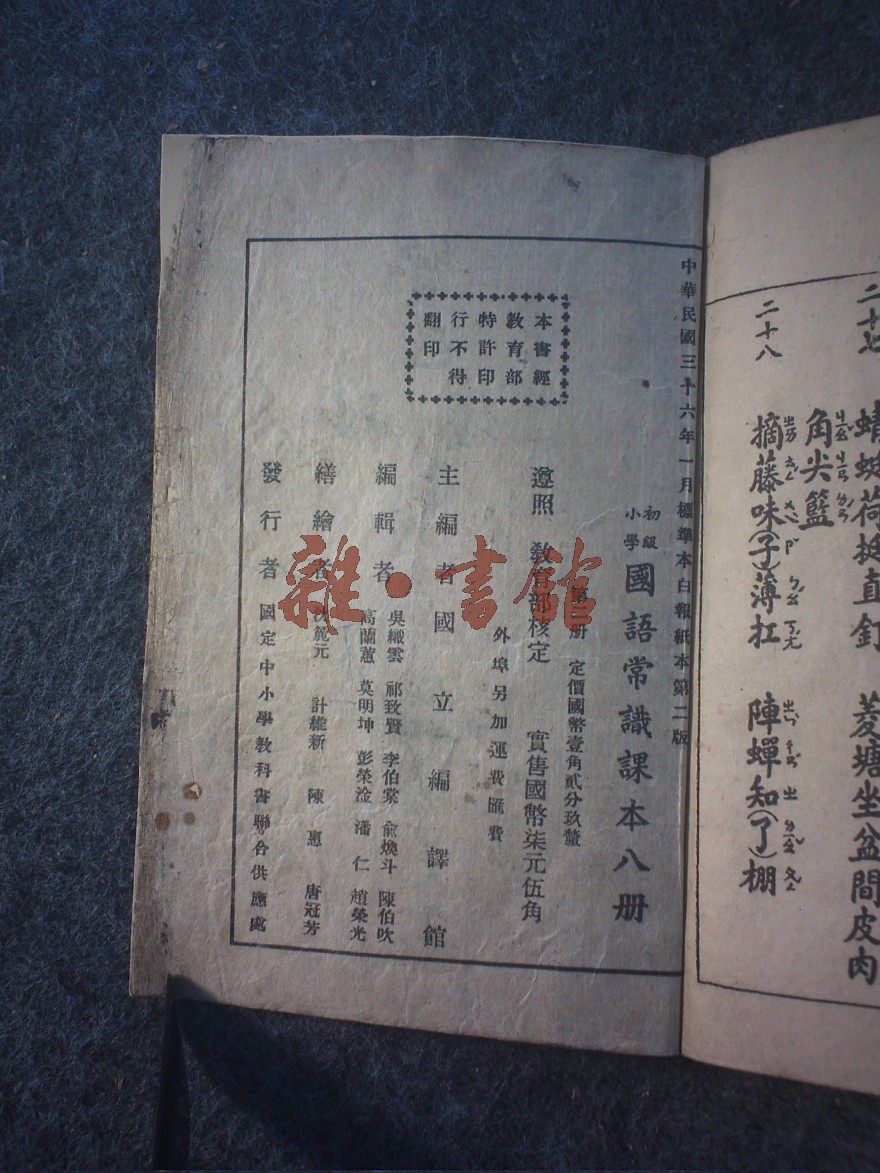 二十七　蜻蜓荷挺直釘　菱塘坐盆間皮肉
角尖籃
ㄐㄧㄠ ㄐㄧㄢ ㄌㄢ
二十八　摘藤味(子)薄扛　陣蟬知(了)棚
中華民國三十六年一月標準本白報紙本第二版
初級
小學
國語常識課本八册
册　定價國幣壹角貳分玖釐
遵照　教育部核定　實售國幣柒元伍角
外埠另加運費匯費
本書經
教育部
特許印
行不得
翻印
主編者國立編譯館
編輯者
吳織雲　祁致賢　李伯棠　俞煥斗　陳伯吹
高蘭蕙　莫明坤　彭榮淦　潘仁　趙榮光
繕繪者　麓元　計維新　陳惠　唐冠芳
發行者　國定中小學教科書聯合供應處
雜·書館